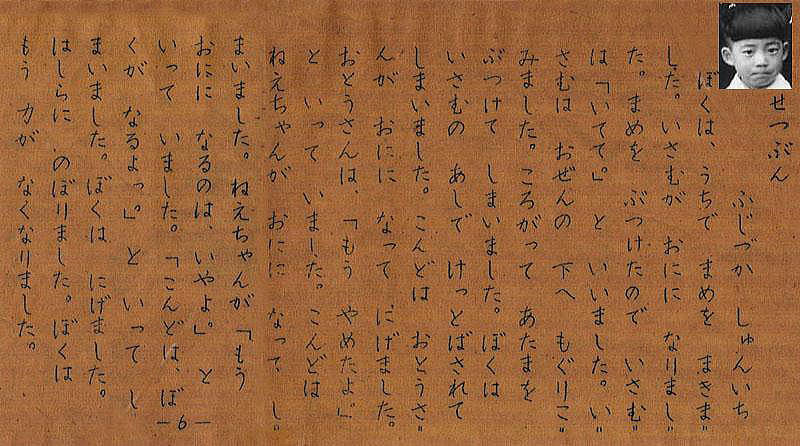 せつぶん
ふじづか しゅんいち
ぼくは、うちで まめを まきま〃
した。いさむが おにに なりまし〃
た。まめを ぶつけたので いさむ〃
は「いてて。」と いいました。い〃
さむは おぜんの 下へ もぐりこ〃
みました。ころがって あたまを
ぶつけて しまいました。ぼくは
いさむの あしで けっとばされて
しまいました。こんどは おとうさ〃
んが おにに なって にげました。
おとうさんは、「もう やめたよ。」
と いって いました。こんどは
ねえちゃんが おにに なって し〃
まいました。ねえちゃんが「もう
おにに なるのは、いやよ。」と
いって いました。「こんどは、ぼ〃
くが なるよっ。」と いって し〃
まいました。ぼくは にげました。
はしらに のぼりました。ぼくは
もう 力が なくなりました。
—6—